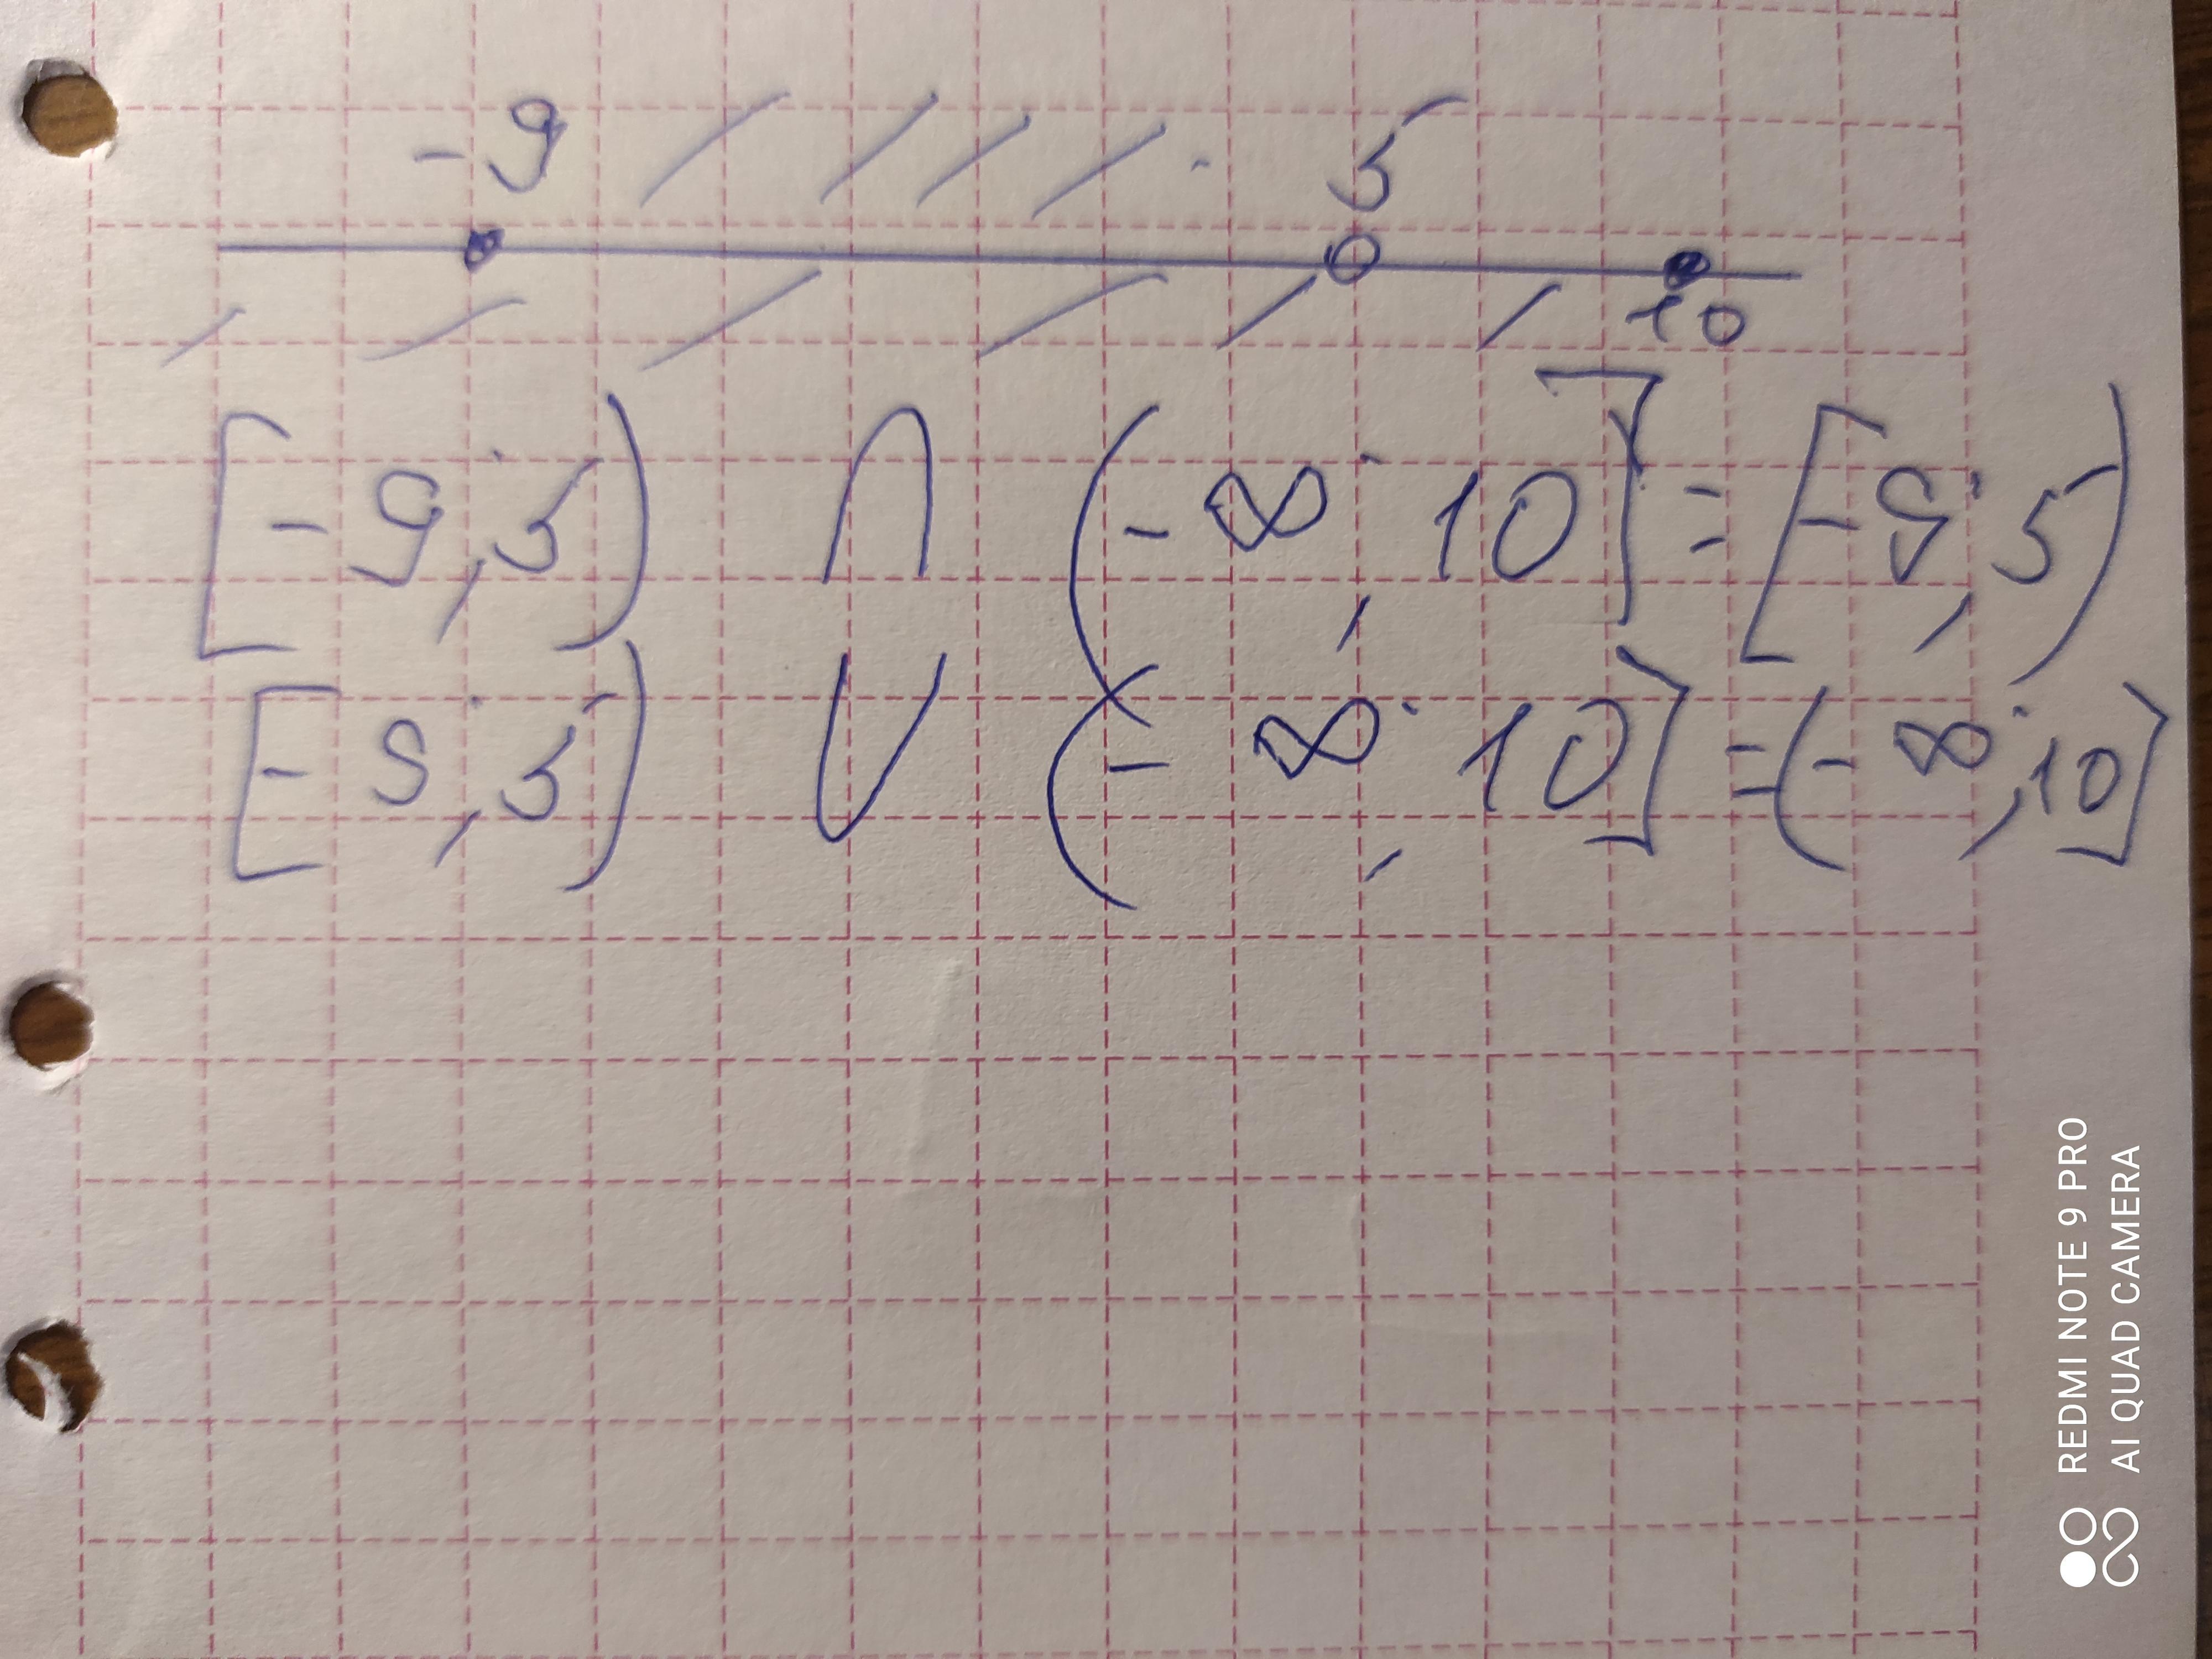 -9 5
10
[-9; 5) ∩ (-∞; 10] = [-9; 5)
[-9; 5) ∪ (-∞; 10] = (-∞; 10]
REDMI NOTE 9 PRO
AI QUAD CAMERA